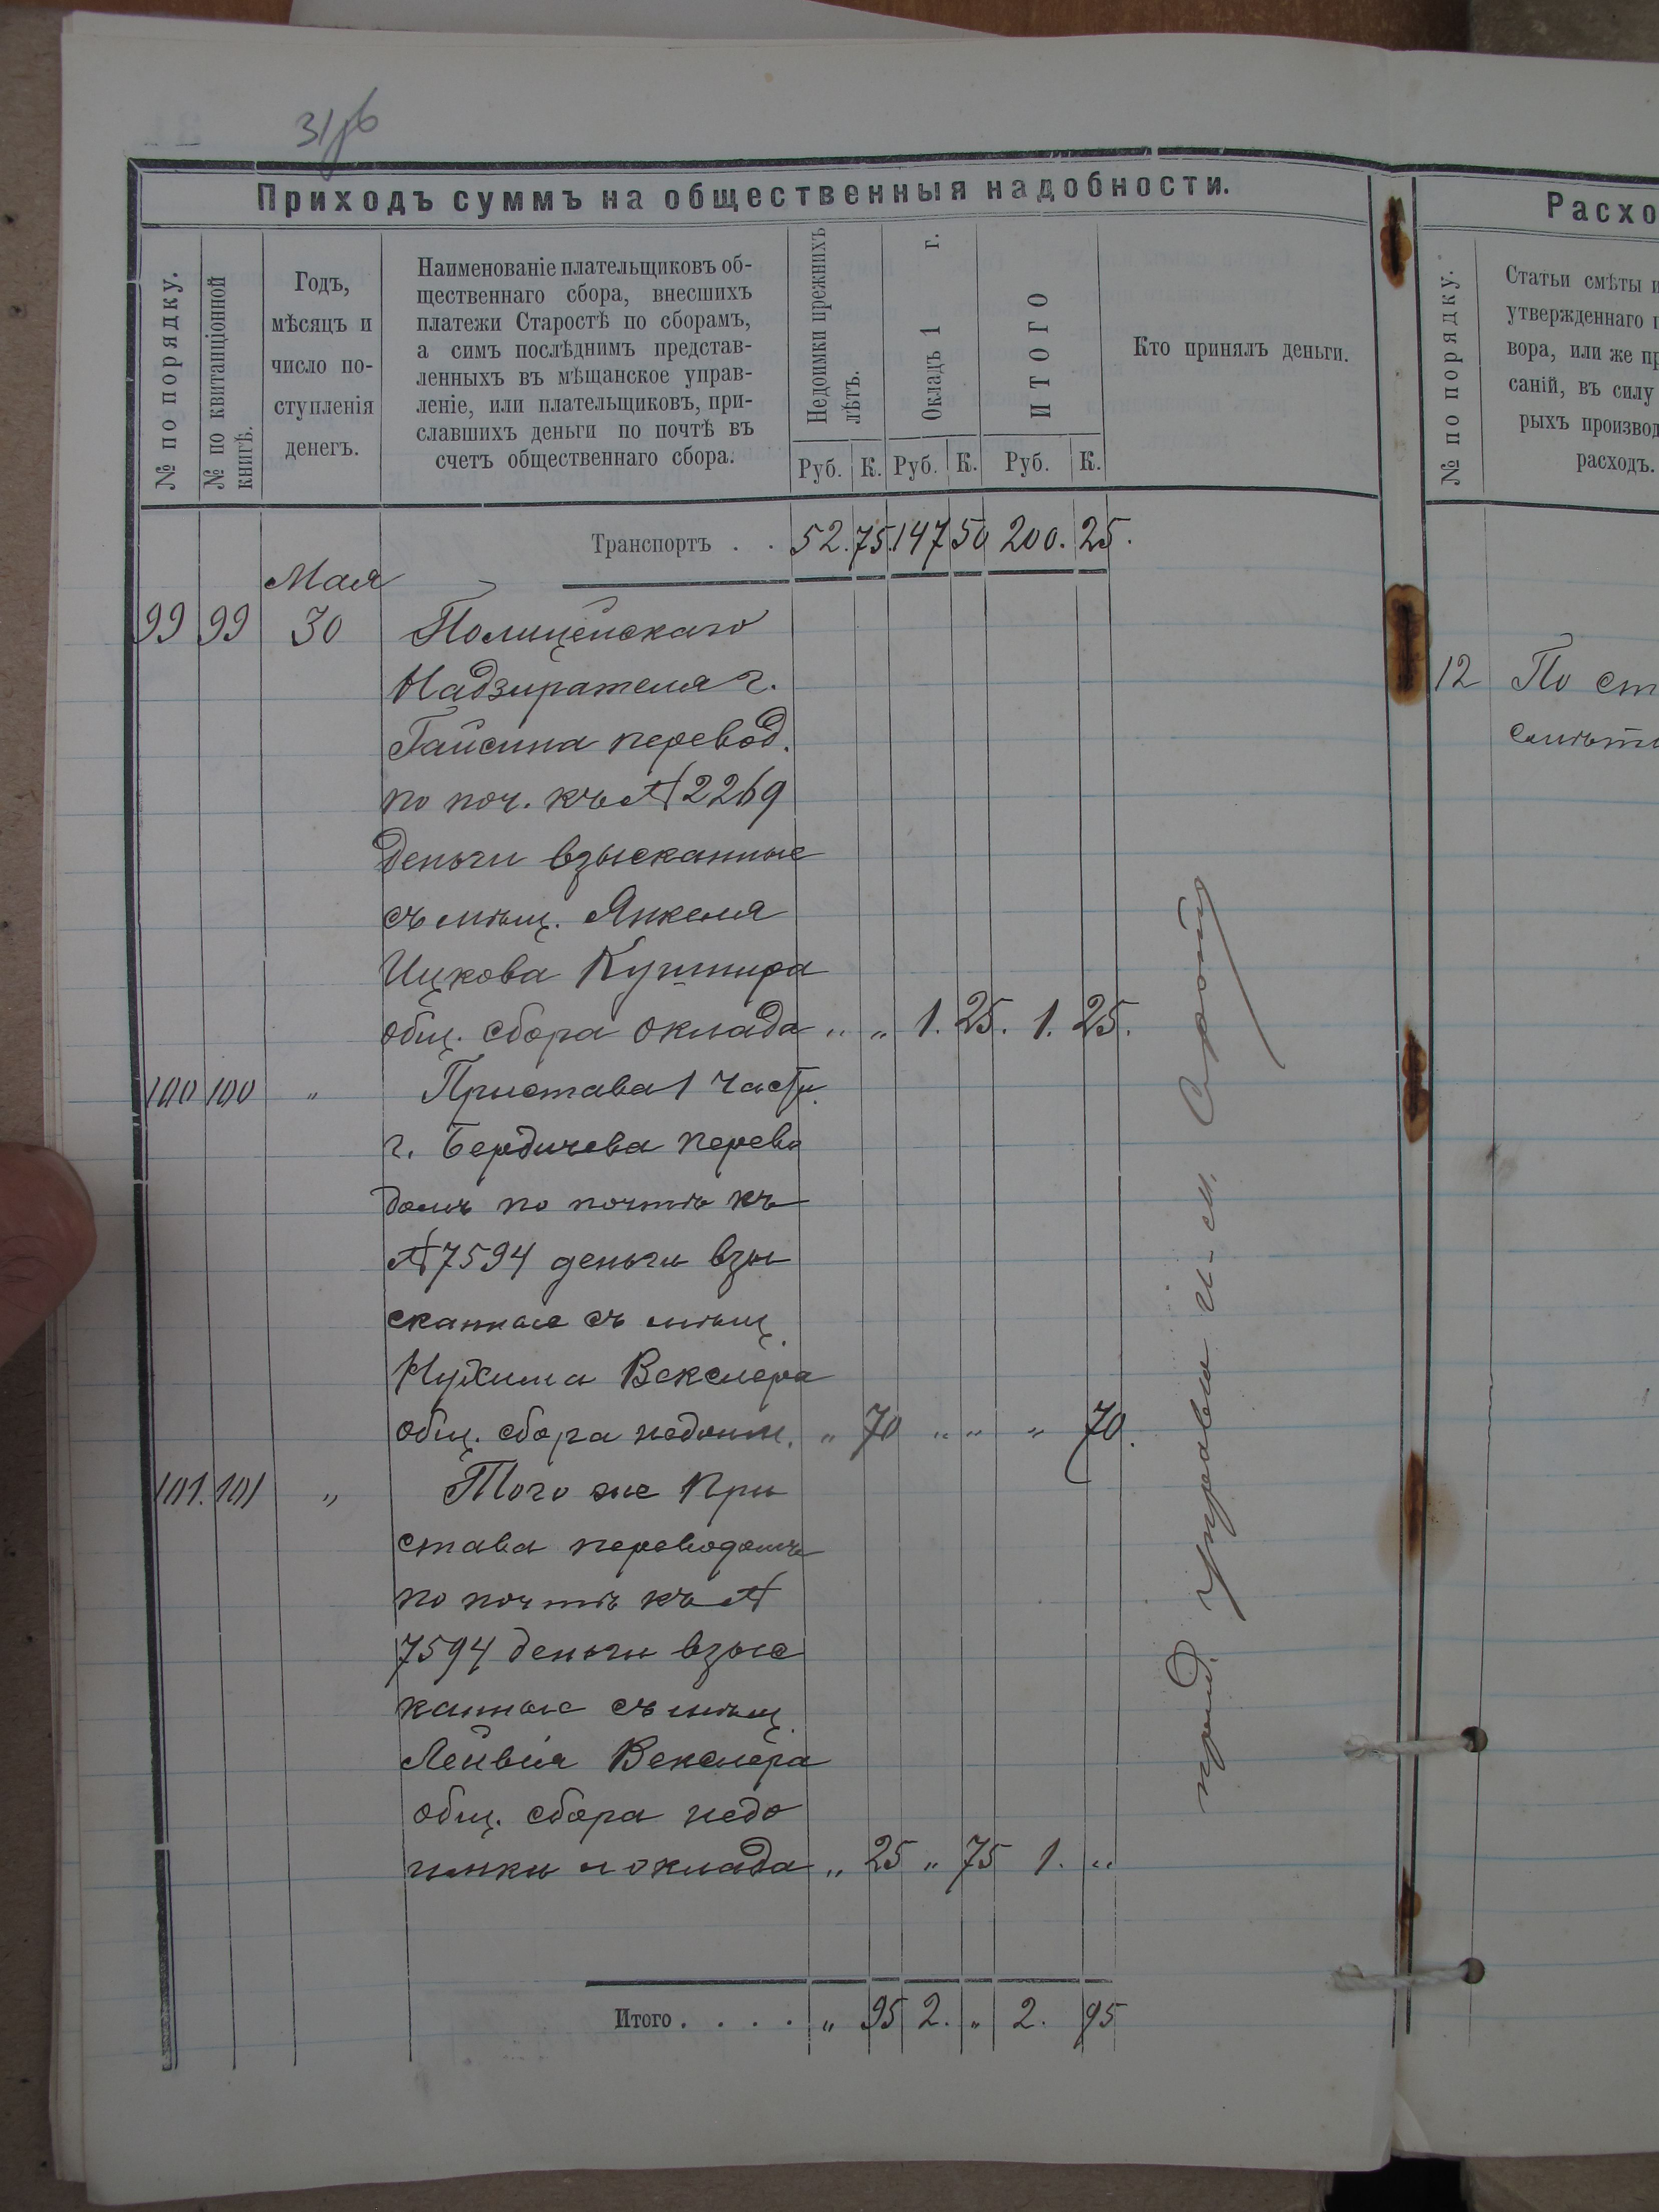 31об
Приходъ суммъ на общественныя надобности.
№ по порядку.
№ по квитанціонной
книгѣ.
Годъ,
мѣсяцъ и
число по-
ступленія
денегъ.
Наименованіе плательщиковъ об-
щественнаго сбора, внесшихъ
платежи Старостѣ по сборамъ,
а симъ послѣднимъ представ-
ленныхъ въ мѣщанское управ-
леніе, или плательщиковъ, при-
славшихъ деньги по почтѣ въ
счетъ общественнаго сбора.
Недоимки прежнихъ
лѣтъ.
Окладъ 1 г.
ИТОГО
Кто принялъ деньги.
Руб. К. Руб. К. Руб. К.
Транспортъ . . 52. 75. 147 50 200. 25.
Мая
99 99 30 Полицейскаго
Надзирателя г.
Гайсина перевод.
по поч. къ № 2269
деньги взысканные
съ мѣщ. Янкеля
Ицкова Кушнира
общ. сбора оклада „ „ 1. 25. 1. 25.
100 100 „ Пристава 1 части
г. Бердичева перево
домъ по почтѣ къ
№ 7594 деньги взы
сканные съ мѣщ.
Нухима Векслера
общ. сбора недоим. „ 70 „ „ „ 70.
101. 101 „ Того же При
става переводомъ
по почтѣ къ №
7594 деньги взыс
канные съ мѣщ.
Лейвія Векслера
общ. сбора недо
имки и оклада „ 25 „ 75 1. „
Итого . . . . „ 95 2. „ 2. 95
управы
Расхо
№ по порядку.
Статьи смѣты и
утвержденнаго п
вора, или же пр
саній, въ силу
рыхъ производ
расходъ.
12 По ст
смѣты